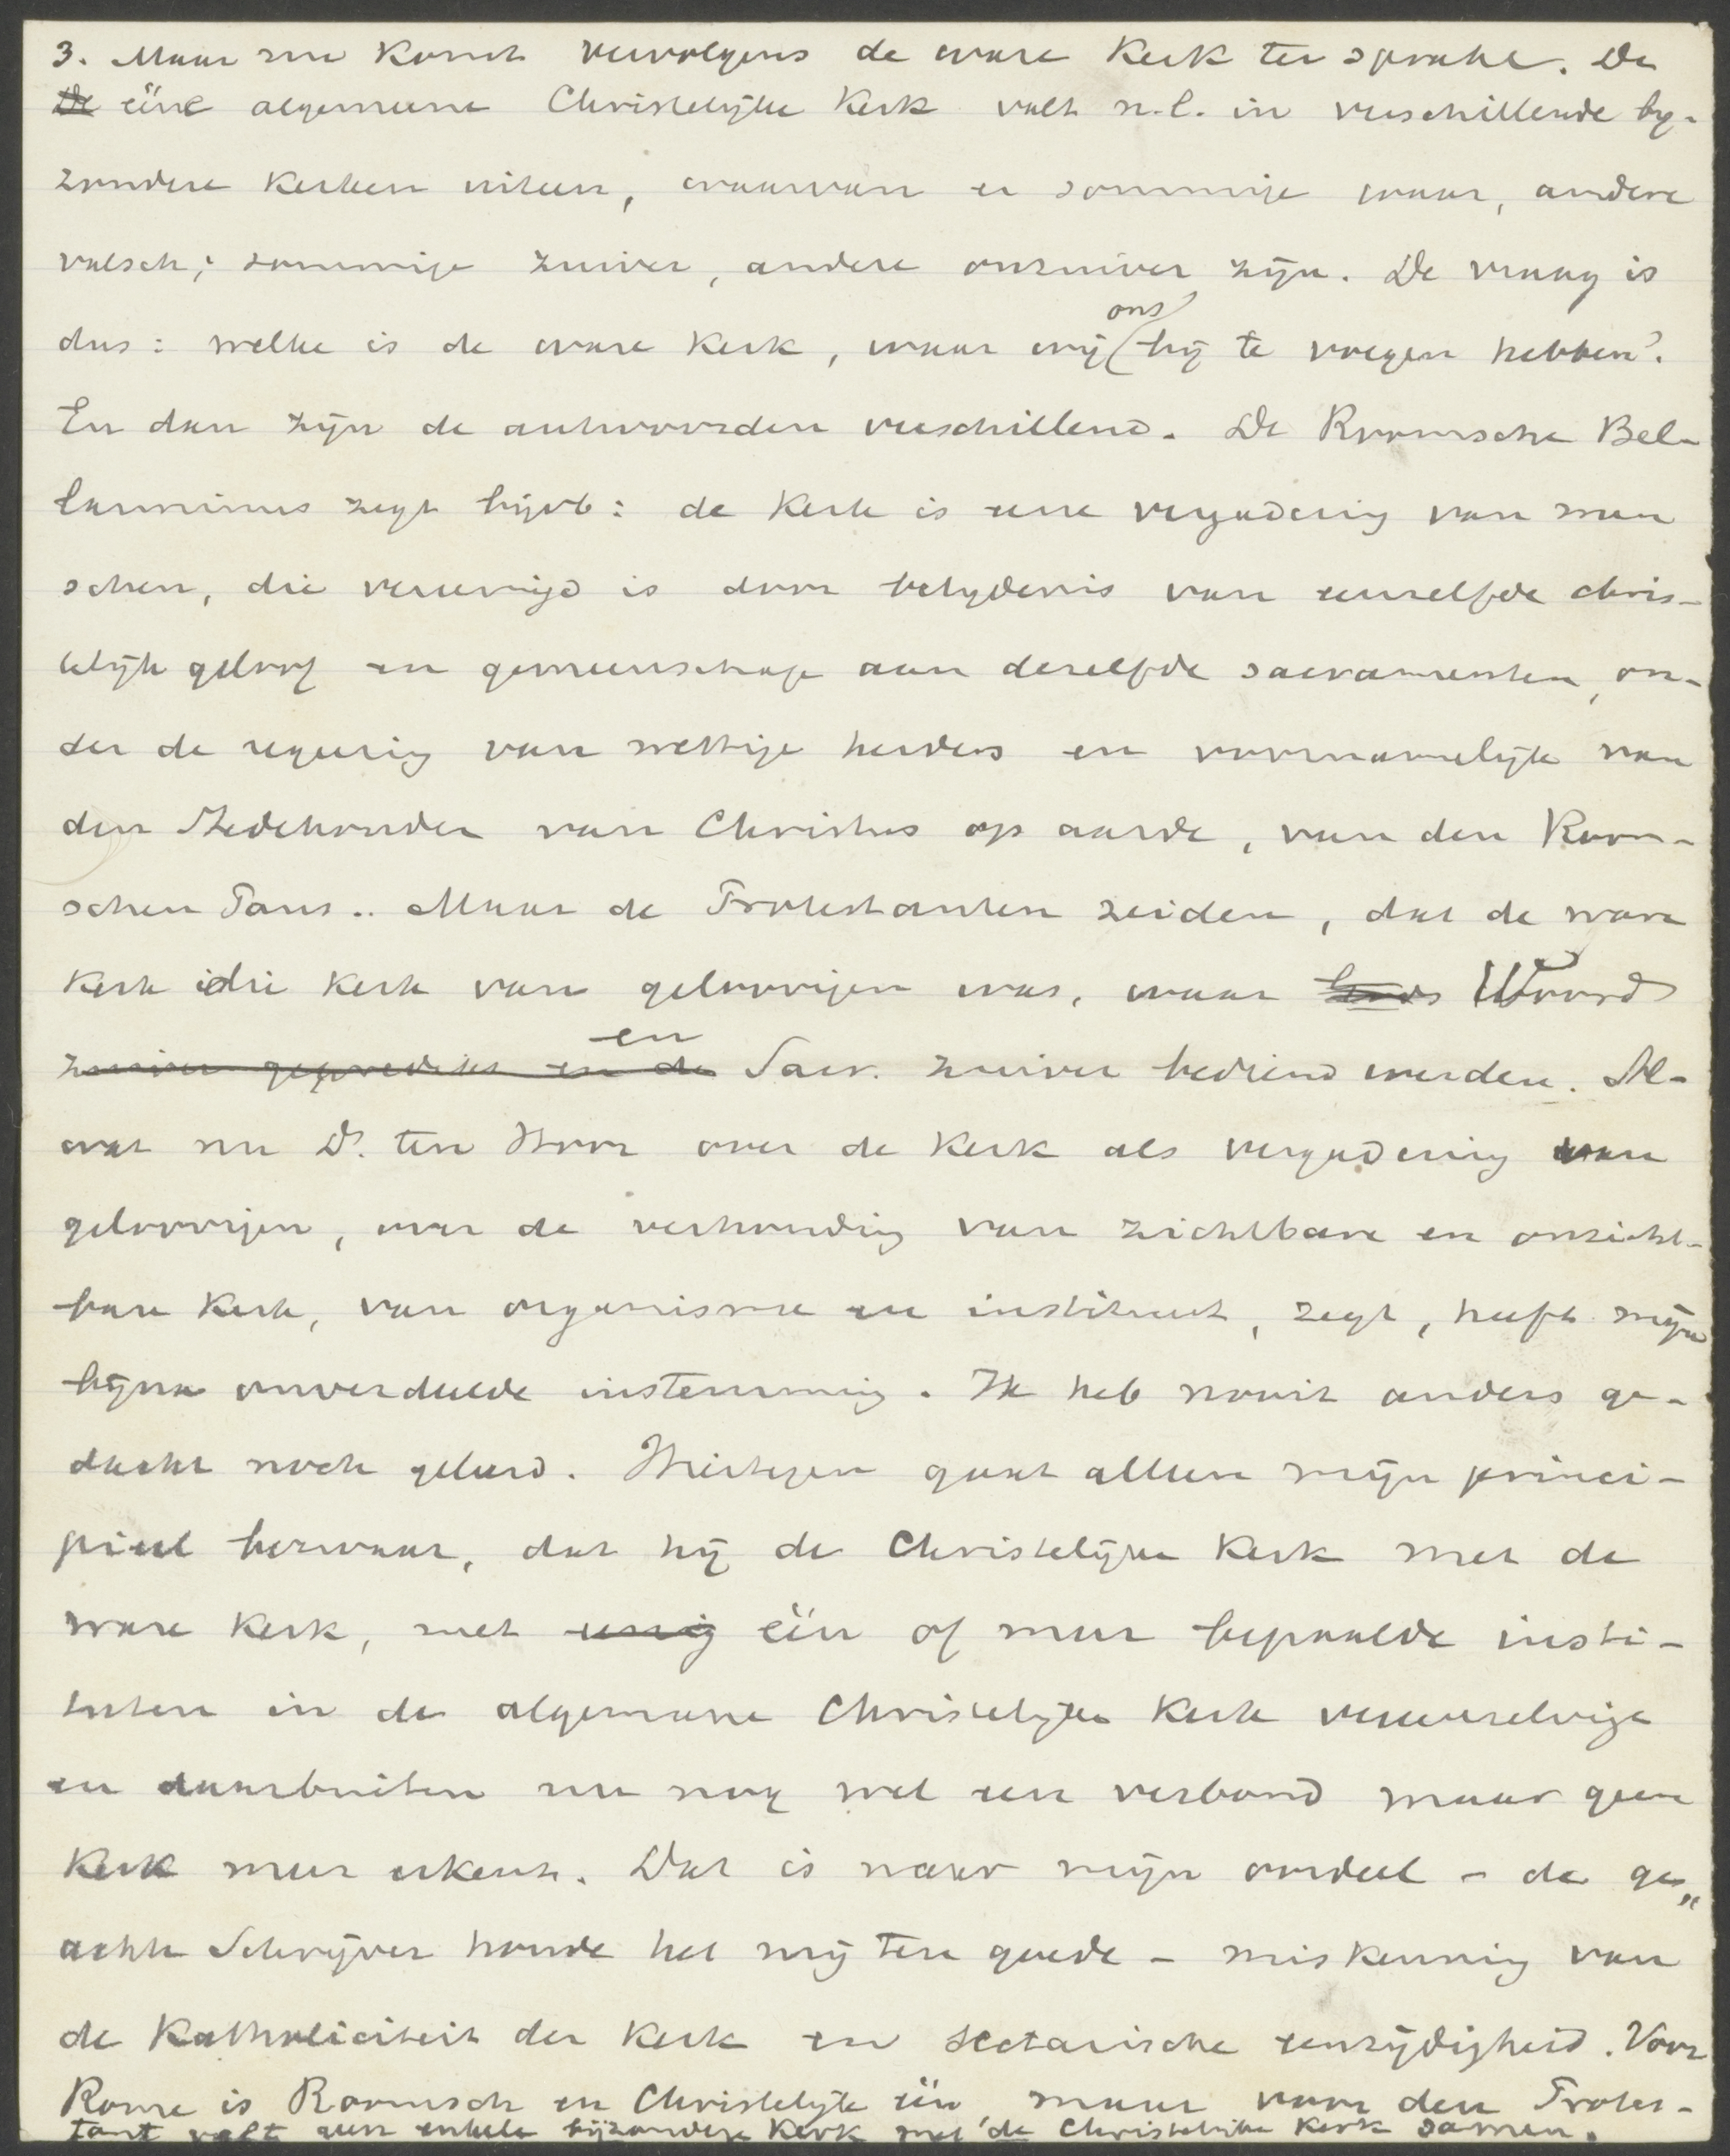 3. Maar nu komt vervolgens de ware Kerk ter sprake. De
De ééne algemeene Christelijke Kerk valt n.l. in verschillende by-
zondere Kerken uiteen, waarvan er sommige waar, andere
valsch; sommige zuiver, andere onzuiver zijn. De vraag is
dus: welke is de ware Kerk, waar wij ons bij te voegen hebben?
En dan zijn de antwoorden verschillend. De Roomsche Bel-
larminus zegt bijvb: de Kerk is eene vergadering van men
schen, die vereenigd is door belydenis van eenzelfde chris-
telijk geloof en gemeenschap aan dezelfde sacramenten, on-
der de regeering van wettige herders en voornamelijk van
den Stedehouder van Christus op aarde, van den Room-
schen Paus.. Maar de Protestanten zeiden, dat de ware
Kerk die Kerk van geloovigen was, waar Gods Woord
zuiver gepredikt en de en Sacr. zuiver bediend werden. Al-
wat nu Ds. ten Hoor over de Kerk als vergadering van
geloovigen, over de verhouding van zichtbare en onzicht-
bare Kerk, van organisme en instituut, zegt, heeft mijn
bijna onverdeelde instemming. Ik heb nooit anders ge-
dacht noch geleerd. Hiertegen gaat alleen mijn princi-
pieel bezwaar, dat hij de Christelijke Kerk met de
ware Kerk, met eenig één of meer bepaalde insti-
tuten in de algemeene Christelijke Kerk vereenzelvigt
en daarbuiten nu nog wel een verbond maar geen
Kerk meer erkent. Dat is naar mijn oordeel - de ge„
achte Schrijver houde het mij ten goede - miskenning van
de Katholiciteit der Kerk en sectarische eenzijdigheid. Voor
Rome is Roomsch en Christelijk één maar voor den Protes-
tant valt geen enkele bijzondere Kerk met de Christelijke Kerk samen.